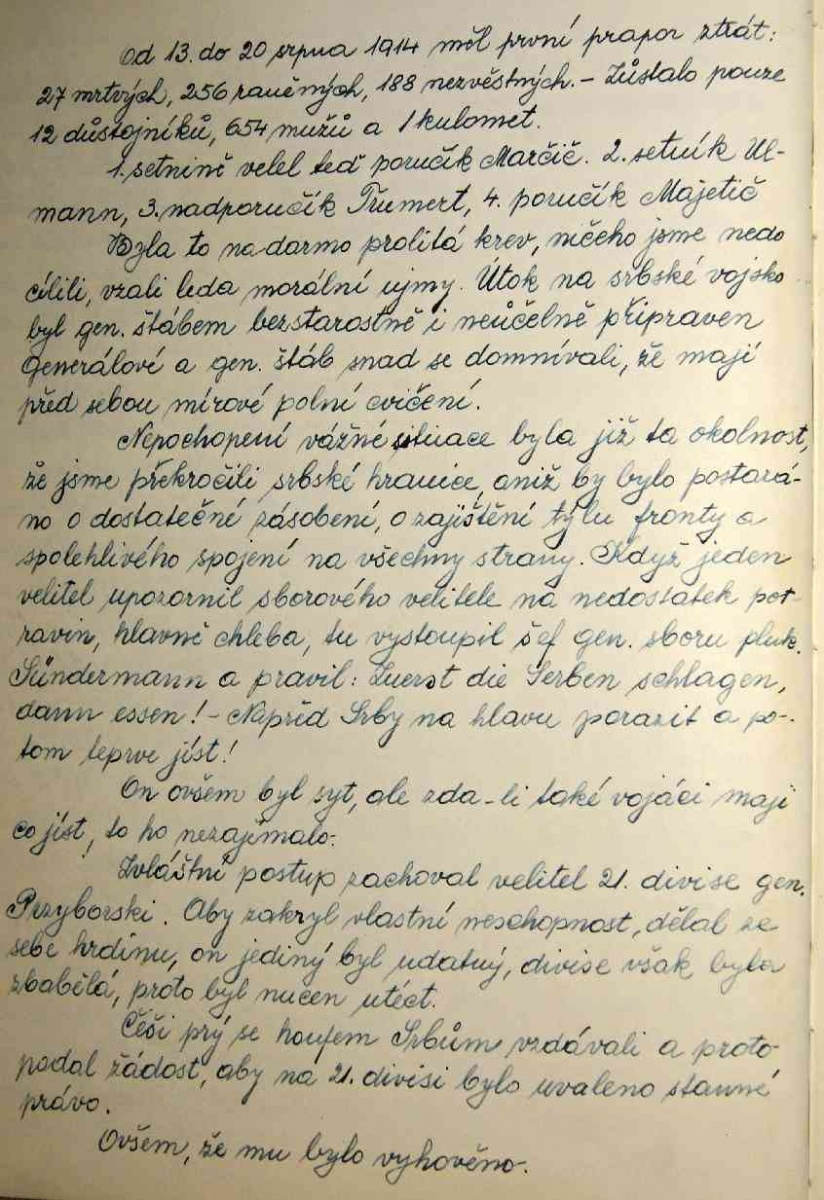 Od 13. do 20 srpna 1914 měl první prapor ztrát:
27 mrtvých, 256 raněných, 188 nezvěstných. – Zůstalo pouze
12 důstojníků, 654 mužů a 1 kulomet.
1. setnině velel teď poručík Marčič. 2. setník Ul-
mann, 3. nadporučík Trumert, 4. poručík Majetič
Byla to nadarmo prolitá krev, ničeho jsme nedo
cílili, vzali leda morální ujmy. Útok na srbské vojsko
byl gen. štábem bezstarostně i neúčelně připraven
Generálové a gen. štáb snad se domnívali, že mají
před sebou mírové polní cvičení.
Nepochopení vážné situace byla již ta okolnost,
že jsme překročili srbské hranice, aniž by bylo postará-
no o dostatečné zásobení, o zajištění týlu fronty a
spolehlivého spojení na všechny strany. Když jeden
velitel upozornil sborového velitele na nedostatek pot-
ravin, hlavně chleba, tu vystoupil šéf gen. sboru pluk.
Sündermann a pravil: Zuerst die Serben schlagen,
dann essen! – Nepříd Srby na hlavu porazit a po-
tom teprve jíst!
On ovšem byl syt, ale zda-li také vojáci mají
co jíst, to ho nezajímalo.
Zvláštní postup zachoval velitel 21. divise gen.
Przyborski. Aby zakryl vlastní neschopnost, dělal ze
sebe hrdinu, on jediný byl udatný, divise však byla
zbabělá, proto byl nucen utéct.
Češi prý se houfem Srbům vzdávali a proto
podal žádost, aby na 21. divisi bylo uvaleno stanné
právo.
Ovšem, že mu bylo vyhověno.